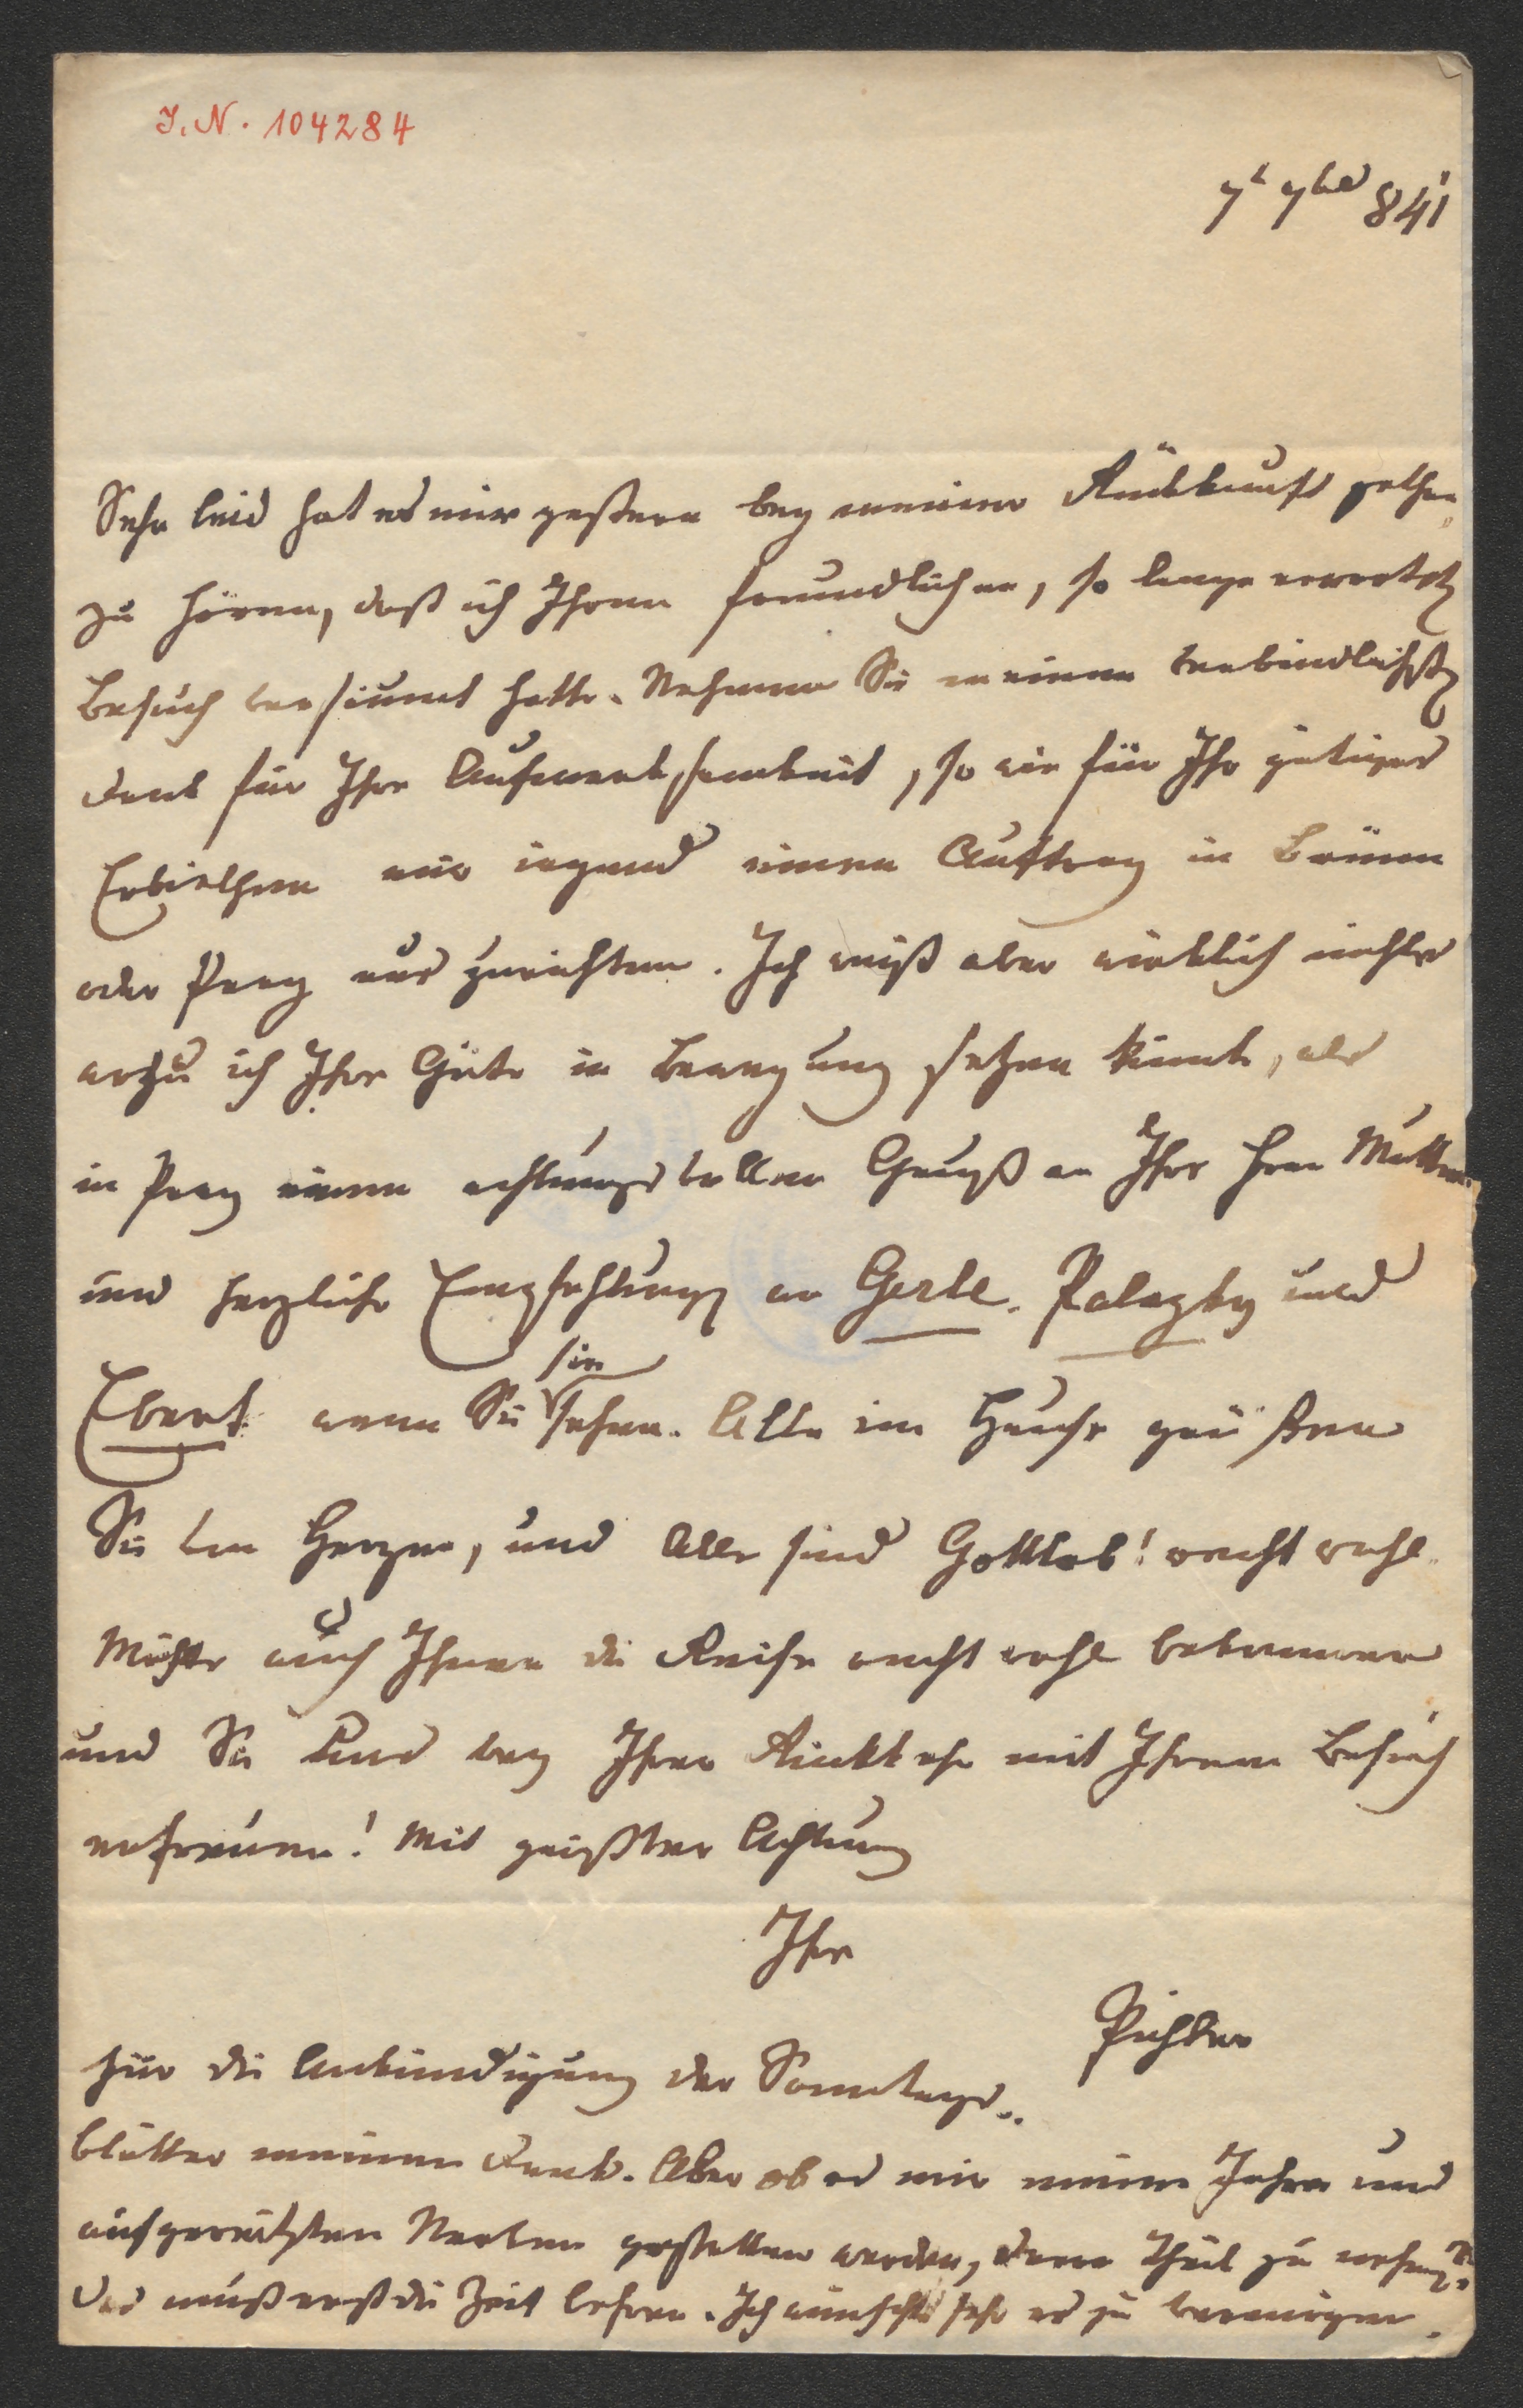 J. N. 104284
7t 7ber 841
Sehr leid hat es mir gestern bey meiner Rückkunft gethan
zu hören, daß ich Ihren freundlichen, so lange erwarteten
Besuch versäumt hatte. Nehmen Sie meinen verbindlichsten
Dank für Ihre Aufmerksamkeit, so wie für Ihr gütiges
Erbiethen mir irgend einen Auftrag in Brünn
oder Prag auszurichten. Ich weiß aber wirklich nichts
wozu ich Ihre Güte in Bewegung setzen könnte, als
in Prag einen achtungsvollen Gruß an Ihre Frau Mutter
und herzliche Empfehlungen an Gerle, Palazky und
Ebert wenn Sie sie sehen. Alle im Hause grüßen
Sie von Herzen, und Alle sind Gottlob! recht wohl.
Möchte auch Ihnen die Reise recht wohl bekommen
und Sie Uns bey Ihrer Rückkehr mit Ihrem Besuch
erfreuen! Mit größter Achtung
Ihre
Pichler
Für die Ankündigung der Sonntags-
blätter meinen Dank. Aber ob es mir meine Jahre und
aufgereitzten Nerven gestatten werden, daran Theil zu nehmen?
Das muß erst die Zeit lehren. Ich wünschte sehr es zu vermögen.